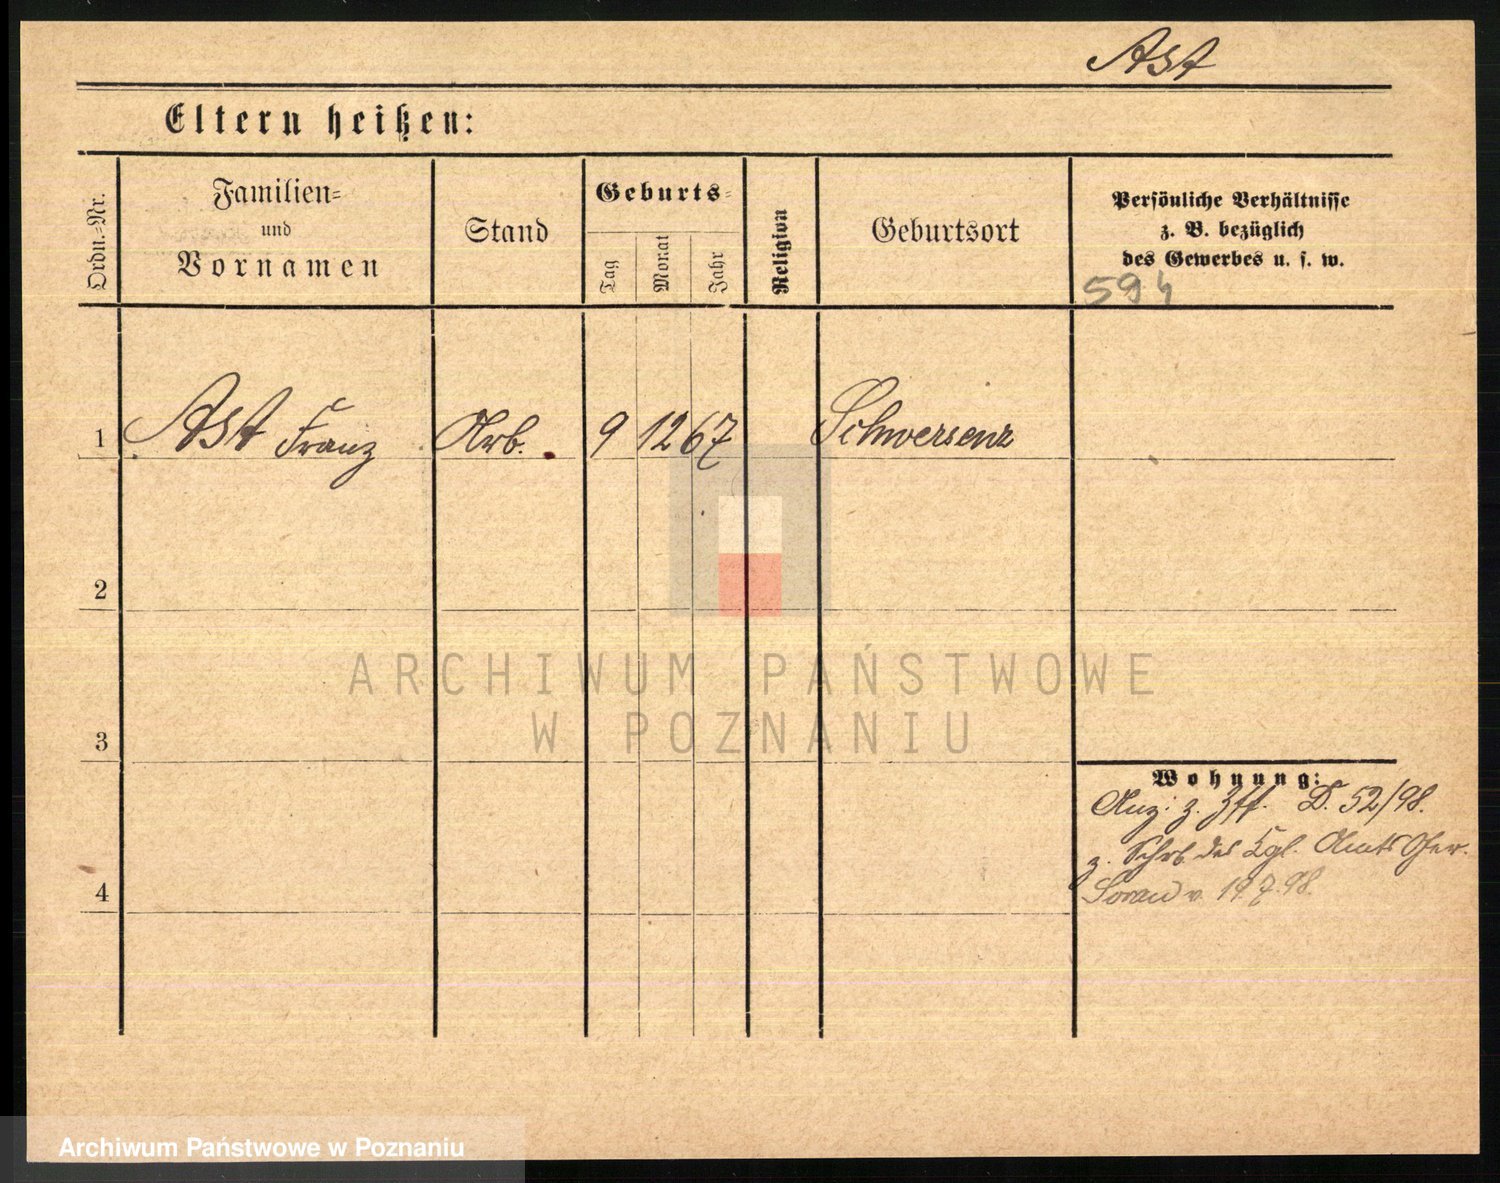 Ast
Eltern heißen:
Ordn.-Nr.
Familien-
und
Vornamen
Stand
Geburts-
Tag
Monat
Jahr
Religion
Geburtsort
Persönliche Verhältnisse
z. B. bezüglich
des Gewerbes u. s. w.
594
1 Ast Franz Arb. 9 12 67 Schwersenz
2
3
4
Wohnung:
Anz. z. Zff. D. 52/98.
z. Schrb des Kgl. Amts Ger.
Sorau v. 19.7.98.
ARCHIWUM PAŃSTWOWE
W POZNANIU
Archiwum Państwowe w Poznaniu